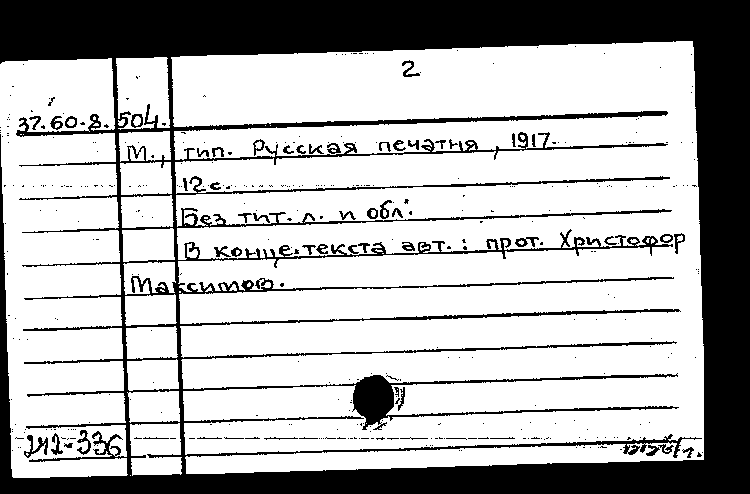 2
37.60.8.504.
М., тип. Русская печатня, 1917.
12 с.
Без тит. л. и обл.
В конце текста авт.: прот. Христофор
Максимов.
242-336